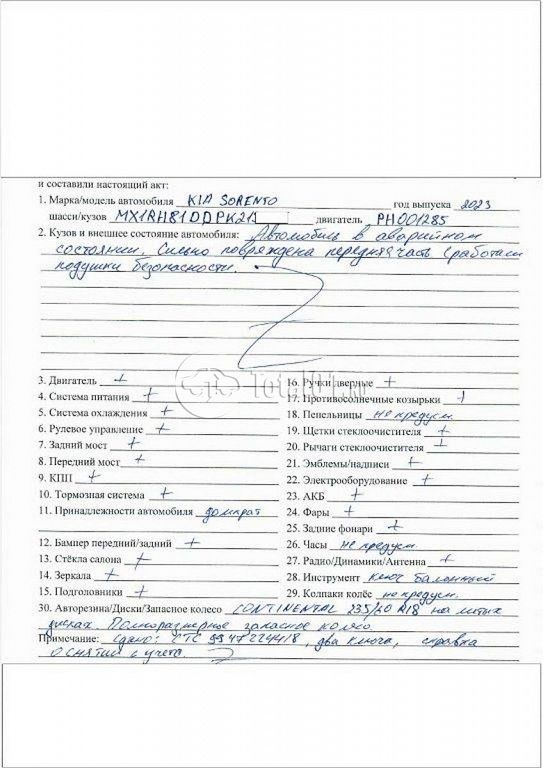 и составили настоящий акт:
1. Марка/модель автомобиля KIA SORENTO год выпуска 2023
шасси/кузов MX1RH81DDPK21 двигатель PH001285
2. Кузов и внешнее состояние автомобиля: Автомобиль в аварийном
состоянии. Сильно повреждена передняя часть сработали
подушки безопасности.
Total01.ru
3. Двигатель + 16. Ручки дверные +
4. Система питания + 17. Противосолнечные козырьки +
5. Система охлаждения + 18. Пепельницы не предусм.
6. Рулевое управление + 19. Щетки стеклоочистителя +
7. Задний мост + 20. Рычаги стеклоочистителя +
8. Передний мост + 21. Эмблемы/надписи +
9. КПП + 22. Электрооборудование +
10. Тормозная система + 23. АКБ +
11. Принадлежности автомобиля домкрат 24. Фары +
25. Задние фонари +
12. Бампер передний/задний + 26. Часы не предусм.
13. Стёкла салона + 27. Радио/Динамики/Антенна +
14. Зеркала + 28. Инструмент ключ балонный
15. Подголовники + 29. Колпаки колёс не предусм.
30. Авторезина/Диски/Запасное колесо CONTINENTAL 235/60 R18 на литых
дисках. Полноразмерное запасное колесо
Примечание: Сдано: СТС 9947224418, два ключа, справка
о снятии с учета.